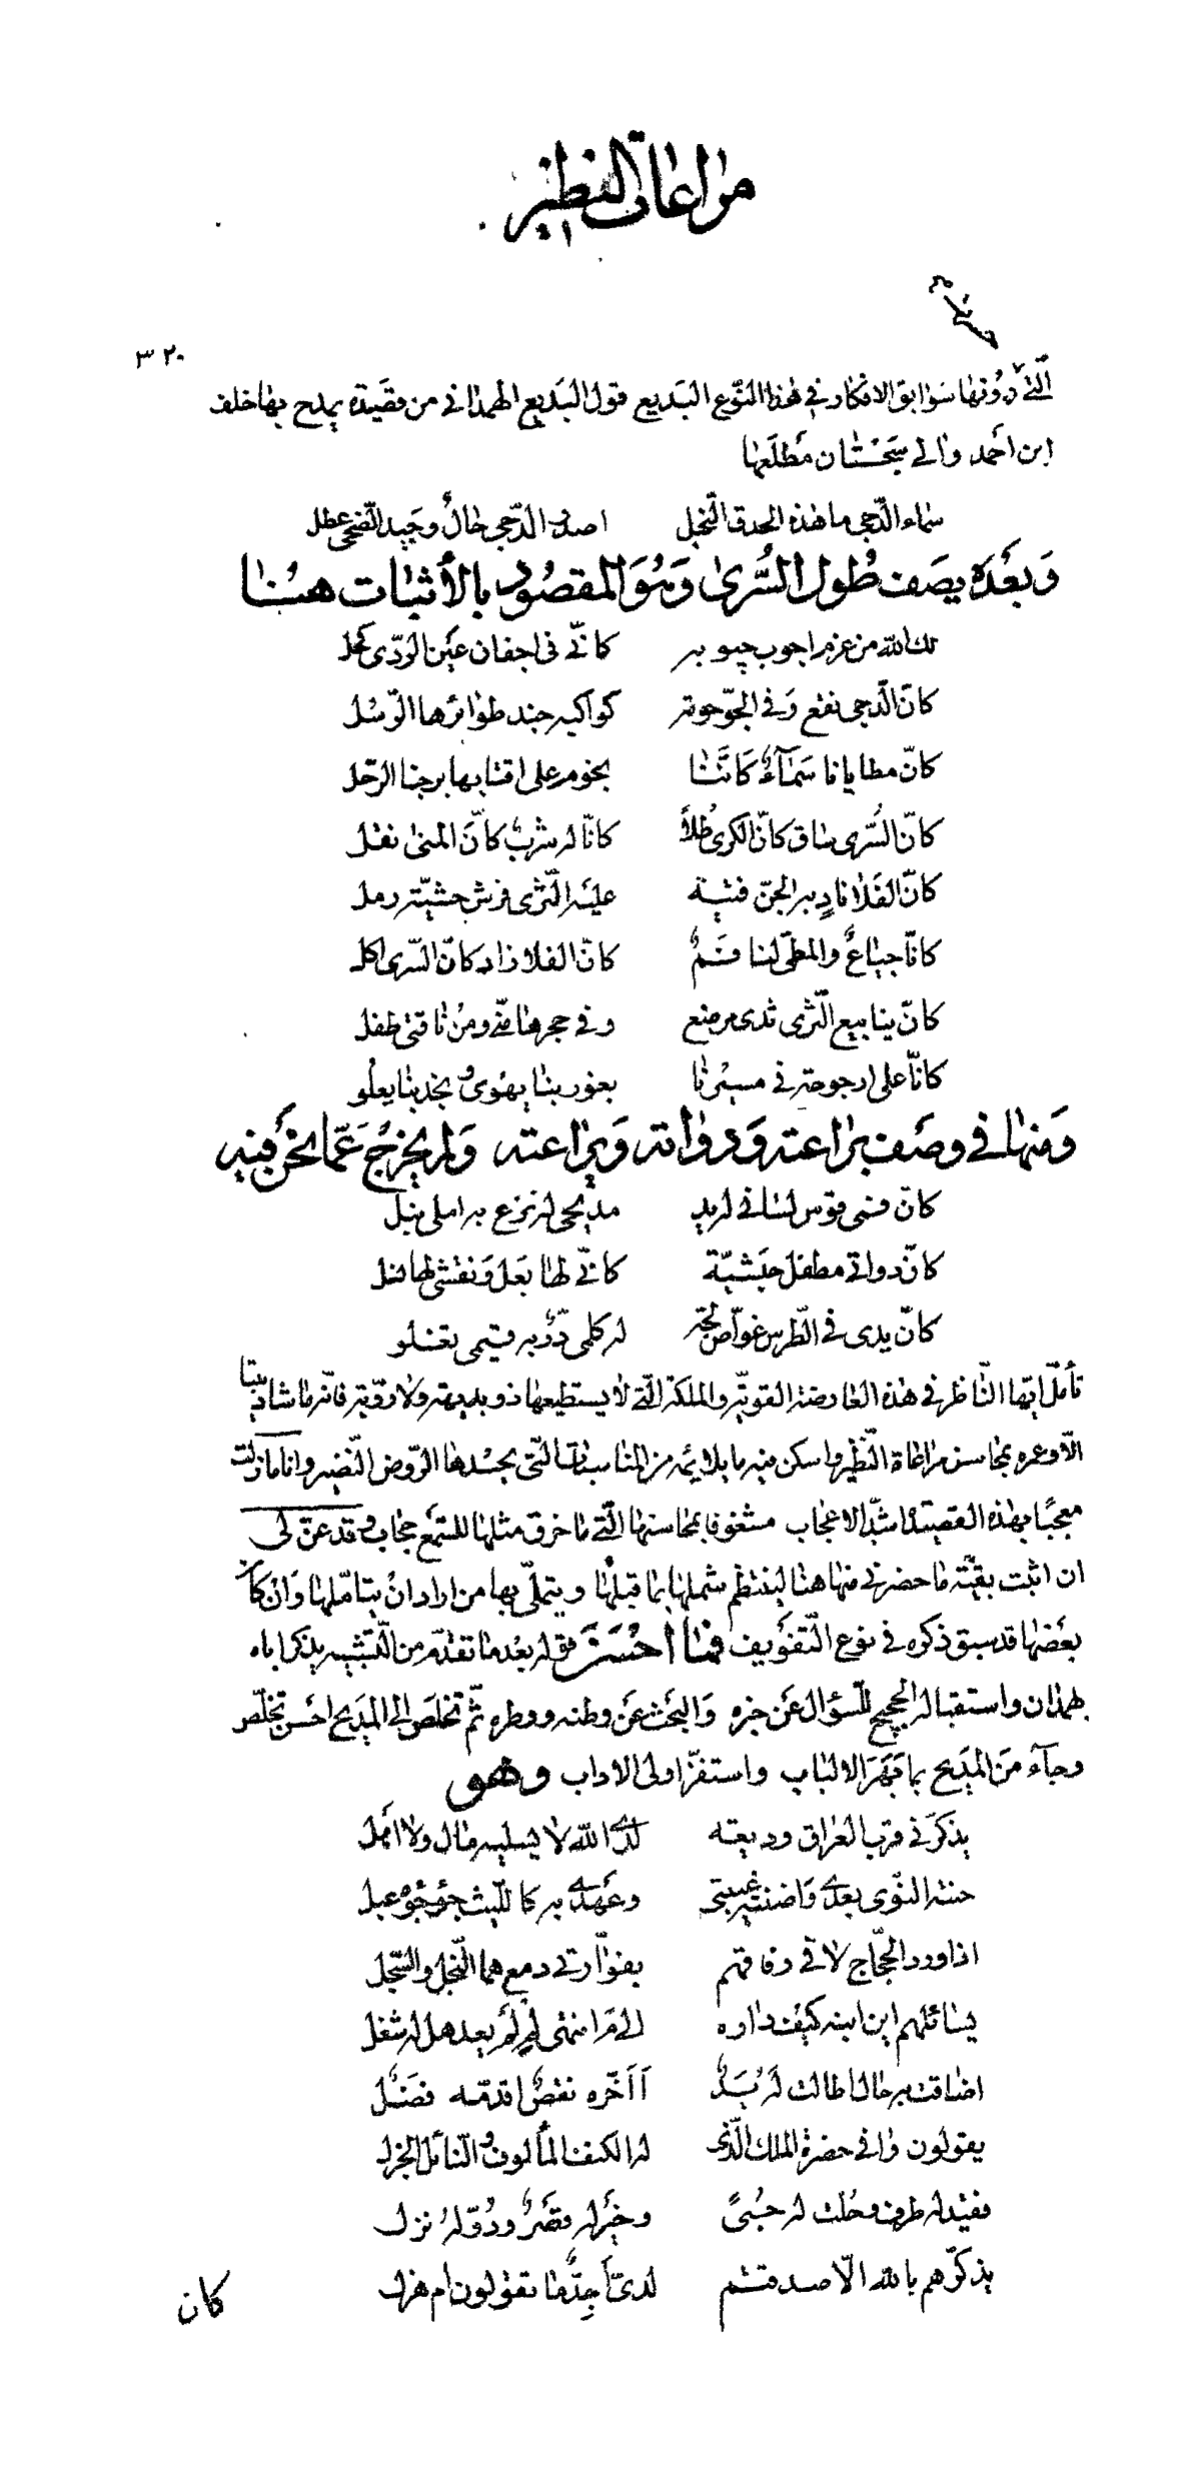 مراعاة النظير
٣٢٠
الّتي دونها سوابق الافكار في هذا النّوع البديع قول البديع الهمذاني من قصيدة يمدح بها خلف
ابن أحمد والي سجستان مطلعها
سماء الدّجى ما هذه الحدق النّجل اصدر الدّجى حال وجيد الضّحى عطل
وبعده يصف طول السّرى وهو المقصود بالأثبات هنا
لك الله من عزم اجوب جيوبه كانّي في اجفان عين الردى كحل
كانّ الدّجى نقع وفي الجوّ حومة كواكبه جند طوائرها الرّسل
كانّ مطايانا سماء كانّنا نجوم على اقتابها برجنا الرّحل
كانّ السّرى ساق كانّ الكرى طلاً كانّا له شرب كانّ المنى نقل
كانّ الفلا ناد به الجنّ فتية عليه الثّرى فرش حشيّته رمل
كانّا جياع والمطيّ لنا فم كانّ الفلا زاد كانّ السّرى اكل
كانّ ينابيع الثّرى ثدي مرضع وفي حجرها منّي ومن ناقتي طفل
كانّا على ارجوحة في مسيرنا بغور بنا يهوى ونجد بنا يعلو
ومنها في وصف براعته ودواته ويراعته ولم يخرج عمّا نحن فيه
كانّ فمي قوس لساني له يد مديحي له نزع به املي نبل
كانّ دواتي مطفل حبشيّة كانّي لها بعل ونقشي لها نسل
كانّ يدي في الطّرس غوّاص لجّة له كلمي درّ به قيمي تغلو
تأمّل ايّها النّاظر في هذه العارضة القويّة والملكة الّتي لا يستطيعها ذو بديهة ولا رويّة فانّه ما شاد بيتا
الّا وعمره بمحاسن مراعاة النّظير واسكن فيه ما يلائمه من المناسبات التّي يحسدها الرّوض النّضير وانا ما زلت
معجبًا بهذه القصيدة اشدّ الاعجاب مشغوفا بمحاسنها الّتي ما خرق مثلها للسّمع حجاب وقد عنّ لي
ان اثبت بقيّة ما حضرني منها هنا لينتظم شملها بما قبلها ويتملّى بها من اراد ان يتأمّلها وان كان
بعضها قد سبق ذكره في نوع التّفويف فما أحسن قوله بعد ما تقدّم من التّشبيه يذكر اباه
بهمذان واستقباله الحجيج للسّؤال عن خبره والبحث عن وطنه ووطره ثمّ تخلّص الى المديح احسن تخلّص
وجآء من المديح بما قهر الالباب واستفزّ اولى الاداب وهو
يذكّرني قرب العراق وديعة لدى الله لا يسليه مال ولا اهل
حنته النّوى بعدى واضنته غيبتي وعهدى به كاللّيث جؤجؤه عبل
اذا ورد الحجّاج لاقى رفاقهم بفوّارتي دمع هما النّجل والسّجل
يسائلهم اين ابنه كيف داره الى م انتهى لم لم يعد هل له شغل
اضاقت به حال اطالت له يد أأخّره نقص اقدّمه فضل
يقولون وافى حضرة الملك الّذي له الكنف المألوف والنّائل الجزل
ففيد له طرف وحلّت له حبىً وخيّر له قصر ودرّ له نزل
يذكّرهم بالله الّا صدقتم لديّ أجدّ ما تقولون ام هزل
كان